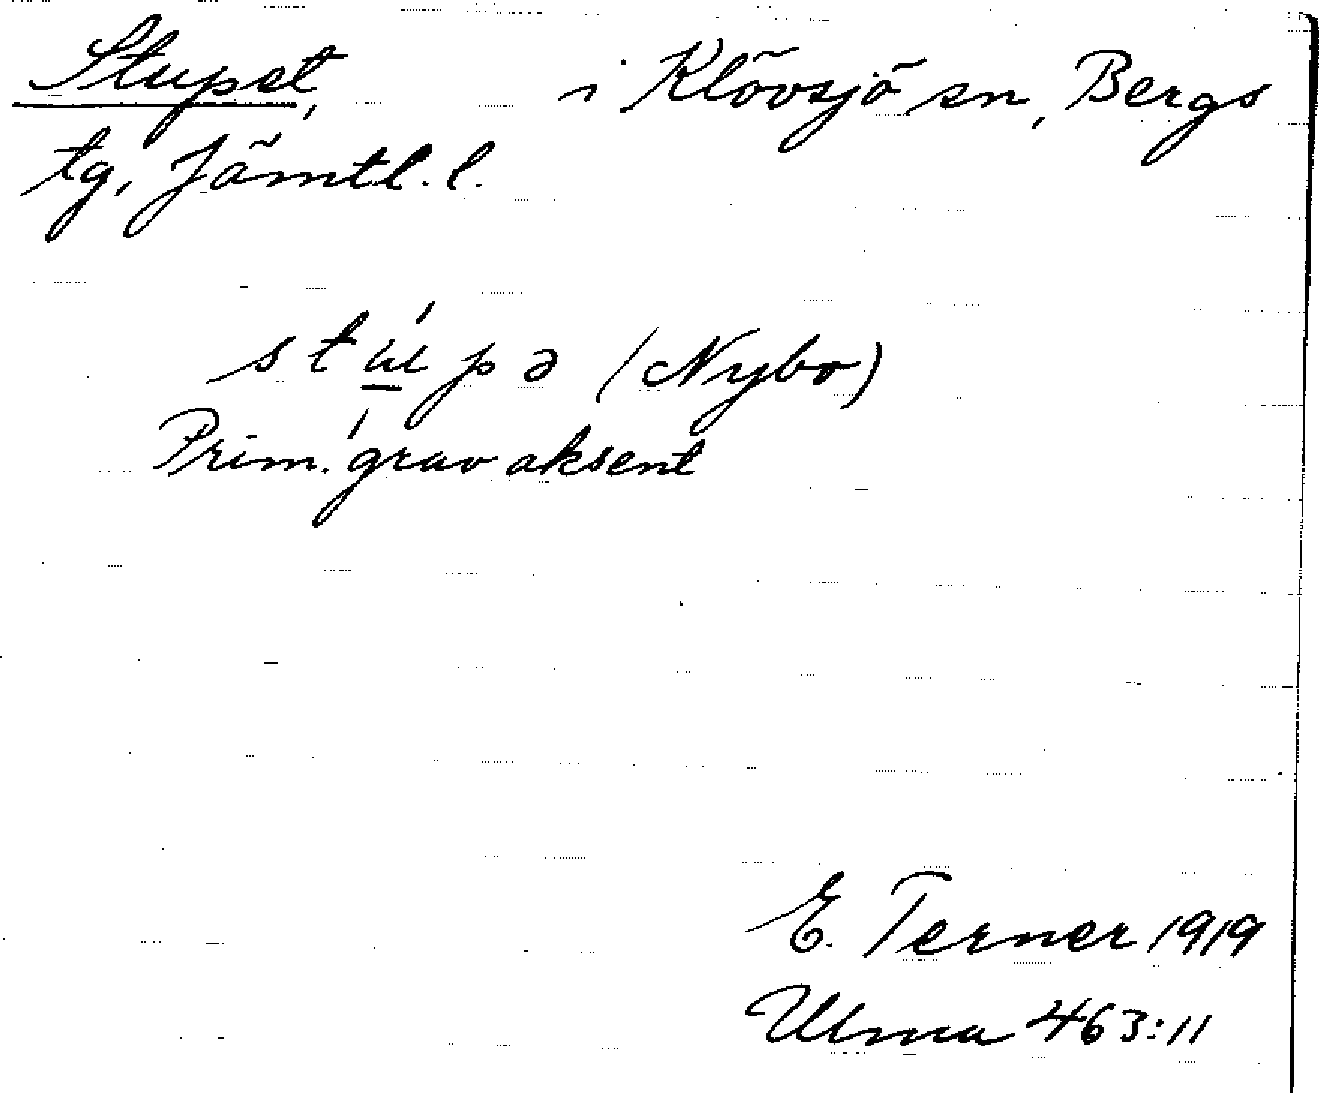 Stupet, i Klövsjö sn, Bergs
tg, Jämtl. l.
stúpə (Nybo)
Prim. grav aksent
E. Terner 1919
Ulma 463:11